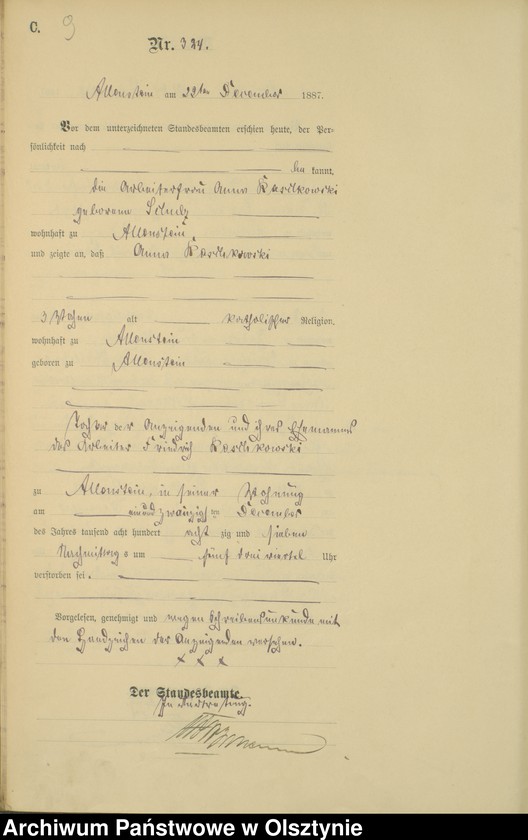 C. 9
Nr. 324.
Allenstein am 22ten December 1887.
Vor dem unterzeichneten Standesbeamten erschien heute, der Per-
sönlichkeit nach
be kannt,
die Arbeiterfrau Anna
geborene Schulz
wohnhaft zu Allenstein
und zeigte an, daß Anna
3 Wochen alt katholischer Religion,
wohnhaft zu Allenstein
geboren zu Allenstein
Tochter der Anzeigenden und ihres Ehemannes
des Arbeiter Friedrich
zu Allenstein, in seiner Wohnung
am einundzwanzigsten December
des Jahres tausend acht hundert acht zig und sieben
Nachmittags um fünf drei viertel Uhr
verstorben sei.
Vorgelesen, genehmigt und wegen Schreibensunkunde mit
den Handzeichen der Anzeigenden versehen.
x x x
Der Standesbeamte.
In Vertretung.
Archiwum Państwowe w Olsztynie